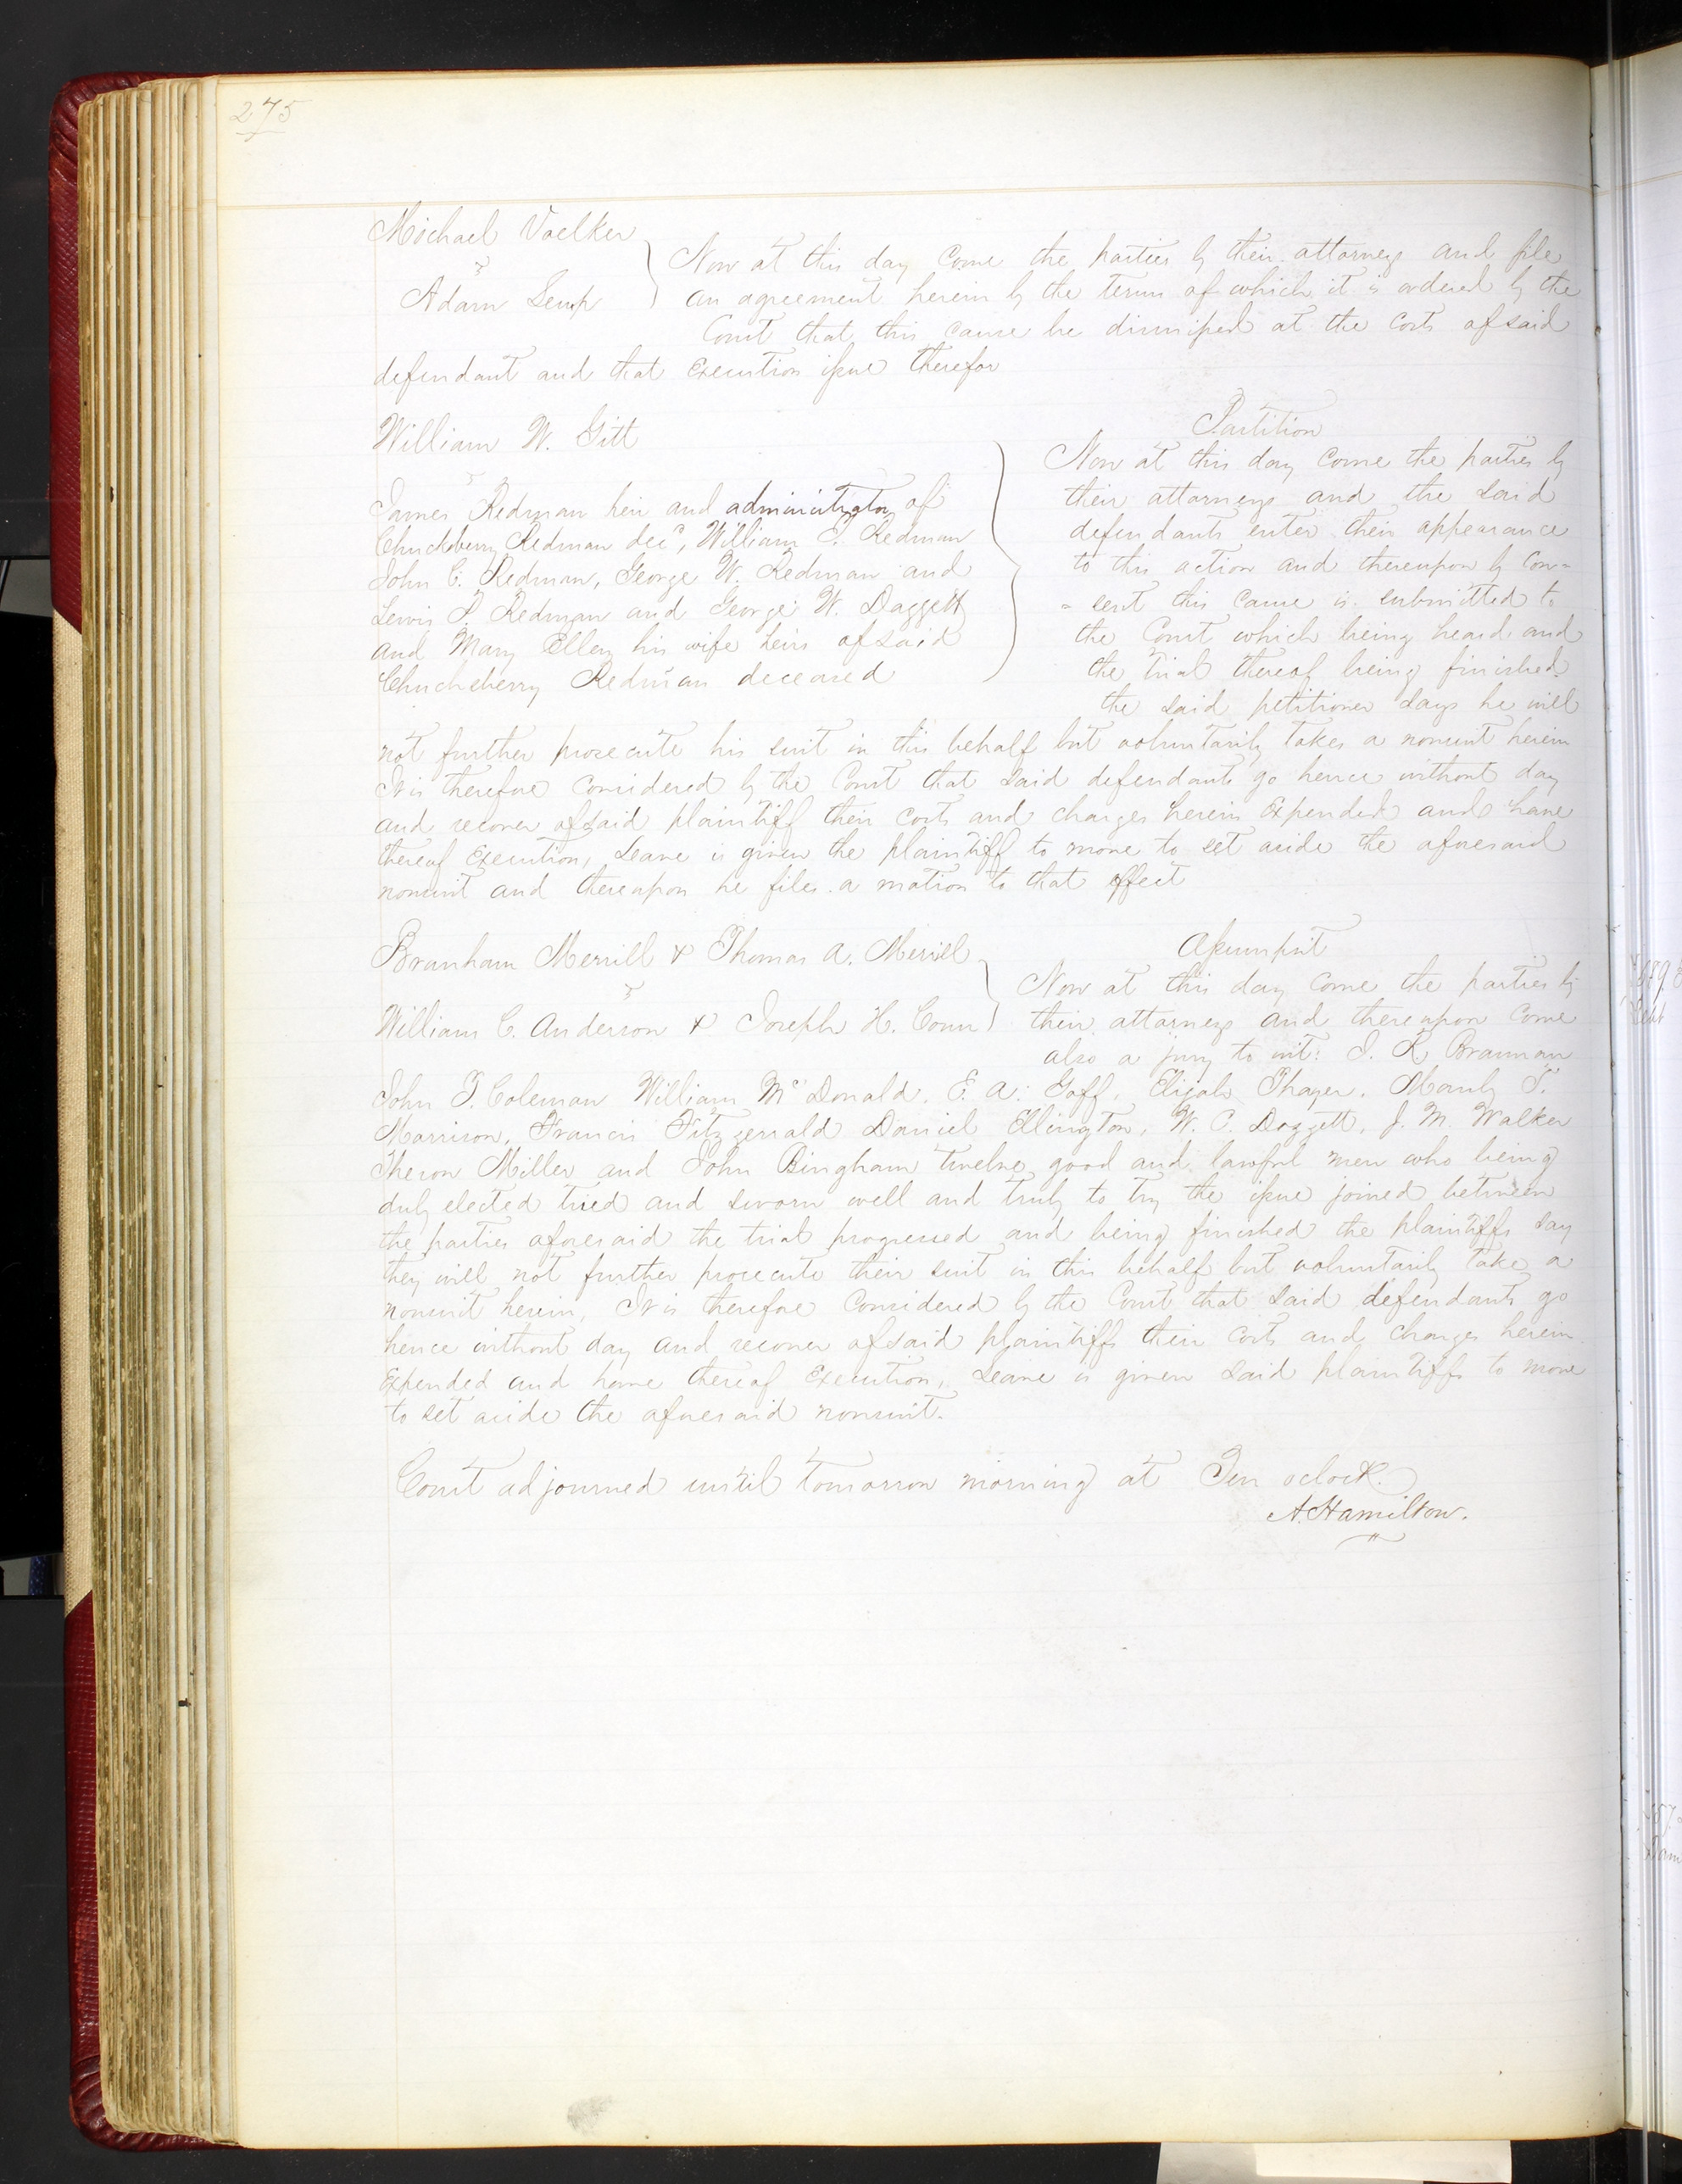 275
Michael Voelker
vs
Adam Lemp
Now at this day come the parties by their attorneys and file
an agreement herein by the terms of which it is ordered by the
Court that this cause be dismissed at the costs of said
defendant and that Execution issue therefor
William W. Gitt
vs
James Redman heir and administrator of
Chuckberry Redman decd, William T. Redman
John C. Redman, George W. Redman and
Lewis P. Redman and George W. Daggett
and Mary Ellen his wife heirs of said
Chuckeberry Redman deceased
Partition
Now at this day come the parties by
their attorneys and the said
defendants enter their appearance
to this action and thereupon by Con=
=sent this cause is submitted to
the Court which being heard and
the trial thereof being finished
the said petitioner says he will
not further prosecute his suit in this behalf but voluntarily takes a nonsuit herein
It is therefore considered by the Court that said defendants go hence without day
and recover of said plaintiff their costs and charges herein Expended and have
thereof Execution, Leave is given the plaintiff to move to set aside the aforesaid
nonsuit and thereupon he files a motion to that effect
Branham Merrill & Thomas A. Merrill
vs
William C. Anderson & Joseph H. Conn
Assumpsit
Now at this day come the parties by
their attorneys and thereupon come
also a jury to wit: J. R. Brannan
John T. Coleman William Mc Donald. E. A. Goff, Elijah Thayer. Manly T.
Morrison, Francis Fitzgerrald Daniel Ellington, W. C. Doggett, J. M. Walker
Theron Miller and John Bingham twelve good and lawful men who being
duly elected tried and sworn well and truly to try the issue joined between
the parties aforesaid the trial progressed and being finished the plaintiffs say
they will not further prosecute their suit in this behalf but voluntarily take a
nonsuit herein, It is therefore Considered by the Court that said defendants go
hence without day and recover of said plaintiffs their costs and charges herein
Expended and have thereof Execution, Leave is given said plaintiffs to move
to set aside the aforesaid nonsuit.
Court adjourned until tomorrow morning at Ten oclock.
A. Hamilton.